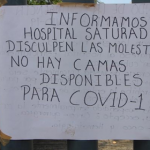 INFORMAMOS
HOSPITAL SATURAD
DISCULPEN LAS MOLEST
NO HAY CAMAS
DISPONIBLES
PARA COVID-1